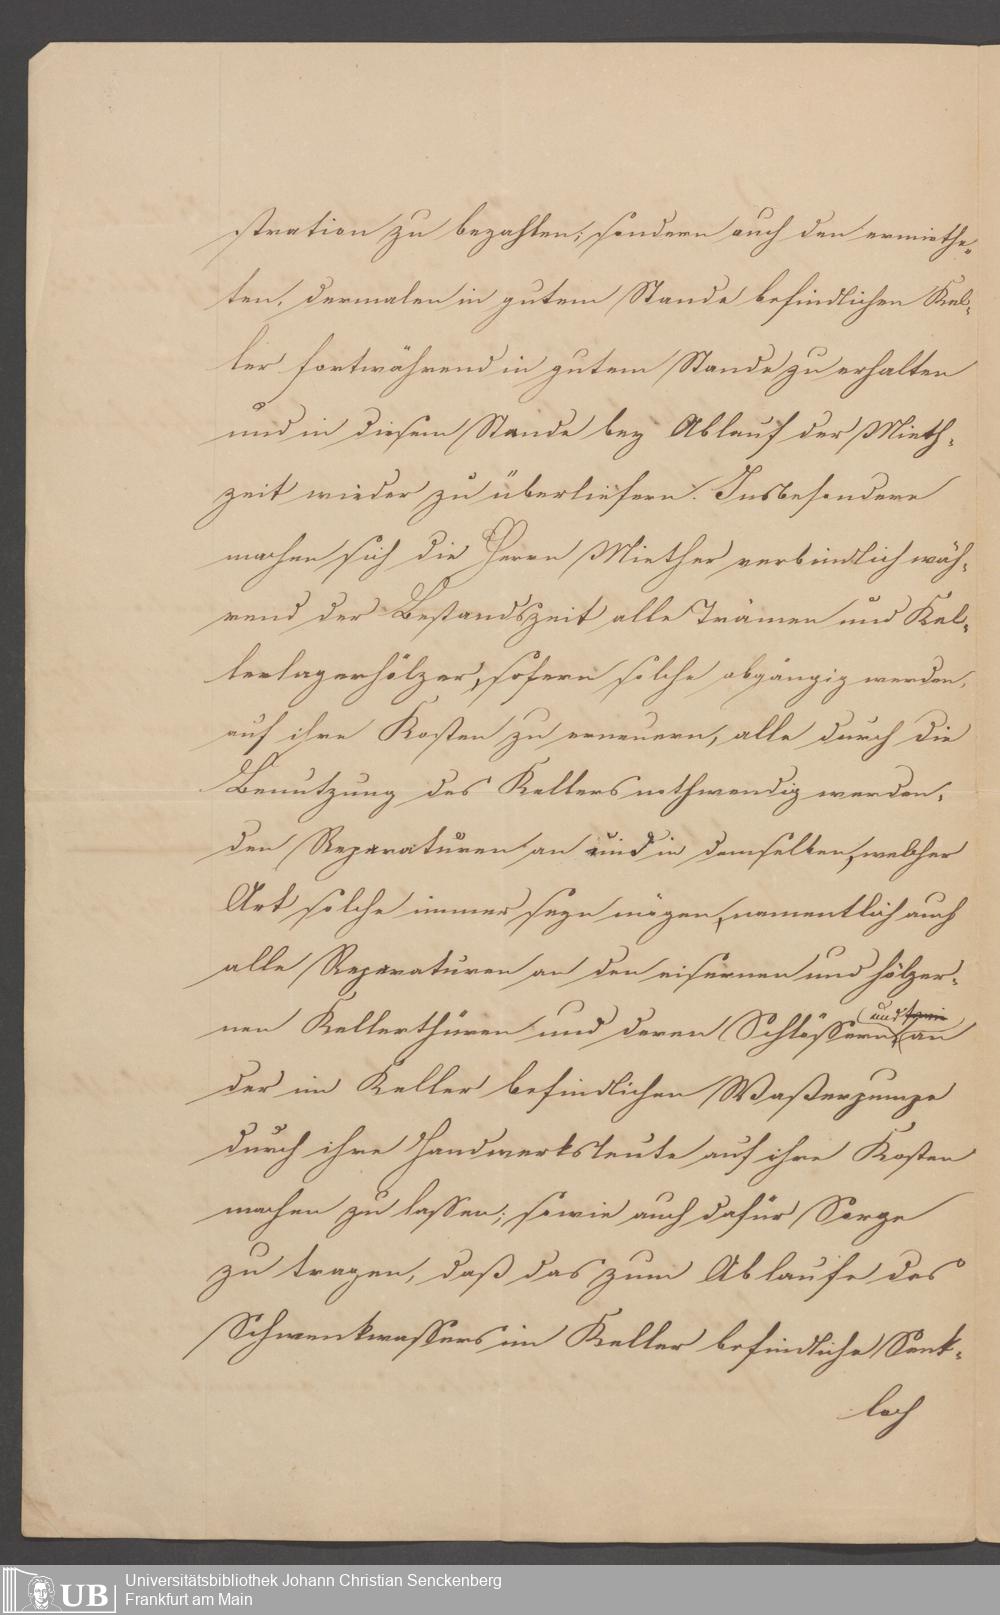 stration zu bezahlen; sondern auch den ermiethe-
ten, dermalen in gutem Stande befindlichen Kel-
ler fortwährend in gutem Stande zu erhalten
und in diesem Stande bey Ablauf der Mieth-
zeit wieder zu überliefern. Insbesondere
machen sich die Herrn Miether verbindlich wäh-
rend der Bestandszeit alle Trämen und Kel-
lerlagerhölzer, sofern solche abgängig werden,
auf ihre Kosten zu erneuern, alle durch die
Benutzung des Kellers nothwendig werden-
den Reparaturen an und in demselben, welcher
Art solche immer seyn mögen, namentlich auch
alle Reparaturen an den eisernen und hölzer-
nen Kellerthüren und deren Schlössern, und sowie an
der im Keller befindlichen Waßerpumpe
durch ihre Handwerksleute auf ihre Kosten
machen zu lassen; sowie auch dafür Sorge
zu tragen, daß das zum Ablaufe des
Schwenkwassers im Keller befindliche Senk-
loch
UB
Universitätsbibliothek Johann Christian Senckenberg
Frankfurt am Main